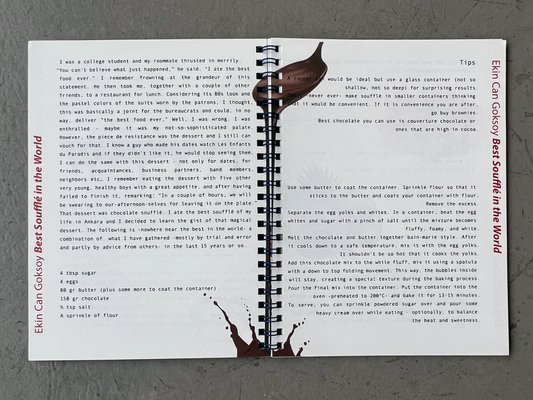 Ekin Can Goksoy Best Soufflé in the World
I was a college student and my roommate thrusted in merrily.
"You can't believe what just happened," he said. "I ate the best
food ever." I remember frowning at the grandeur of this
statement. He then took me, together with a couple of other
friends, to a restaurant for lunch. Considering its 80s look and
the pastel colors of the suits worn by the patrons, I thought,
this was basically a joint for the bureaucrats and could, in no
way, deliver "the best food ever." Well, I was wrong. I was
enthralled - maybe it was my not-so-sophisticated palate.
However, the piece de resistance was the dessert and I still can
vouch for that. I know a guy who made his dates watch Les Enfants
du Paradis and if they didn't like it, he would stop seeing them.
I can do the same with this dessert - not only for dates, for
friends, acquaintances, business partners, band members,
neighbors etc. I remember eating the dessert with five other
very young, healthy boys with a great appetite, and after having
failed to finish it, remarking: "In a couple of hours, we will
be swearing to our-afternoon-selves for leaving it on the plate."
That dessert was chocolate soufflé. I ate the best soufflé of my
life in Ankara and I decided to learn the gist of that magical
dessert. The following is -nowhere near the best in the world- a
combination of what I have gathered -mostly by trial and error
and partly by advice from others- in the last 15 years or so.
4 tbsp sugar
4 eggs
80 gr butter (plus some more to coat the container)
150 gr chocolate
½ tsp salt
A sprinkle of flour
Tips
A would be ideal but use a glass container (not so
shallow, not so deep) for surprising results
never ever- make souffle in smaller containers thinking
it would be convenient. If it is convenience you are after,
go buy brownies.
Best chocolate you can use is couverture chocolate or
ones that are high in cocoa.
Use some butter to coat the container. Sprinkle flour so that it
sticks to the butter and coats your container with flour
Remove the excess
Separate the egg yolks and whites. In a container, beat the egg
whites and sugar with a pinch of salt until the mixture becomes
fluffy, foamy, and white
Melt the chocolate and butter together bain-marie style. After
it cools down to a safe temperature, mix it with the egg yolks.
It shouldn't be so hot that it cooks the yolks
Add this chocolate mix to the white fluff, mix it using a spatula
with a down to top folding movement. This way, the bubbles inside
will stay, creating a special texture during the baking process
Pour the final mix into the container. Put the container into the
oven -preheated to 200°C- and bake it for 13-15 minutes.
To serve, you can sprinkle powdered sugar over and pour some
heavy cream over while eating - optionally, to balance
the heat and sweetness.
Ekin Can Goksoy Best Soufflé in the World